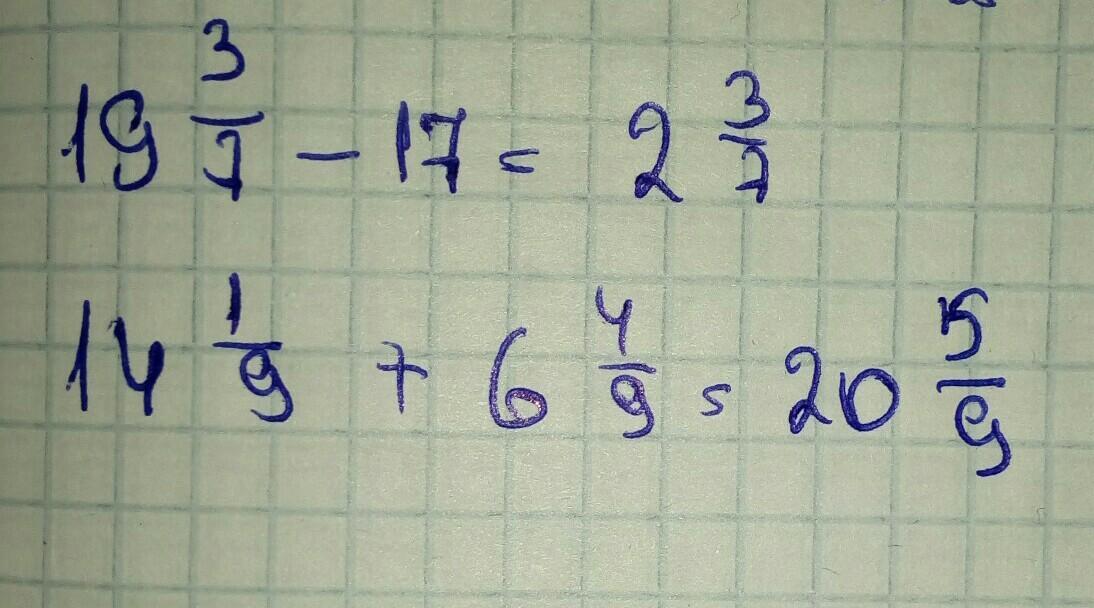 19 3/7 - 17 = 2 3/7
14 1/9 + 6 4/9 = 20 5/9